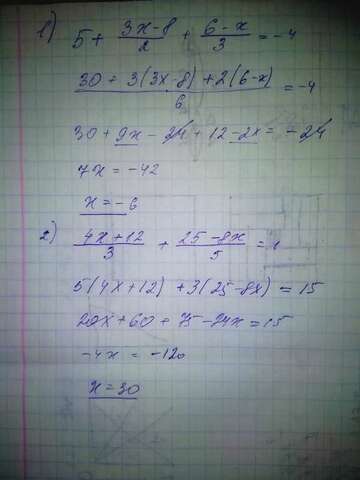 1) 5 + (3x-8)/2 + (6-x)/3 = -4
(30 + 3(3x-8) + 2(6-x))/6 = -4
30 + 9x - 24 + 12 - 2x = -24
7x = -42
x = -6
2) (4x+12)/3 + (25-8x)/5 = 1
5(4x+12) + 3(25-8x) = 15
20x + 60 + 75 - 24x = 15
-4x = -120
x = 30